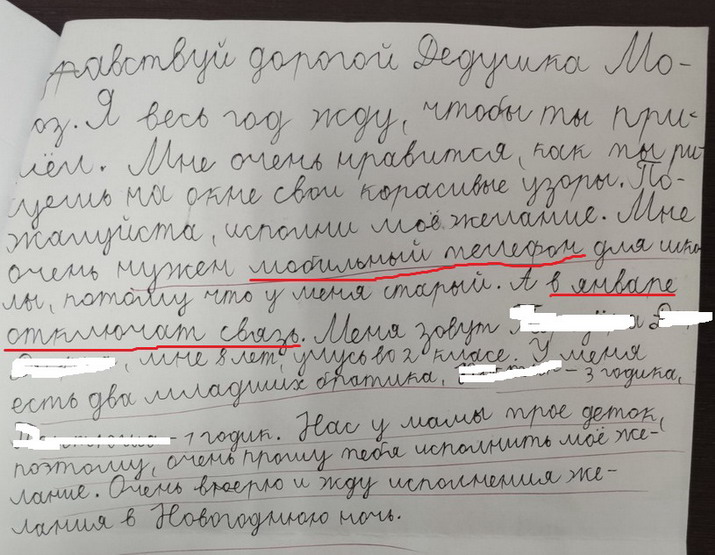 равствуй дорогой Дедушка Мо-
оз. Я весь год жду, чтобы ты при-
шёл. Мне очень нравится, как ты ри-
суешь на окне свои корасивые узоры. По-
жалуйста, исполни моё желание. Мне
очень нужен мобильный телефон для шко
лы, потому что у меня старый. А в январе
отключат связь. Меня зовут
мне 8 лет, учусь во 2 класе. У меня
есть два младших братика, – 3 годика,
– 1 годик. Нас у мамы трое деток,
поэтому, очень прошу тебя исполнить моё же-
лание. Очень вюерю и жду исполнения же-
лания в Новогоднюю ночь.